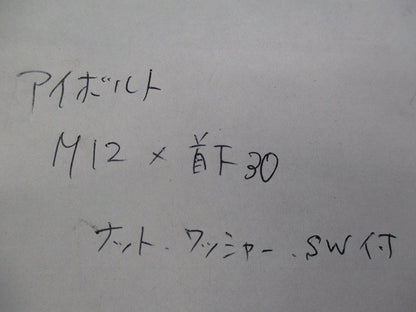 アイボルト
M12 × 首下30
ナット、ワッシャー、SW付